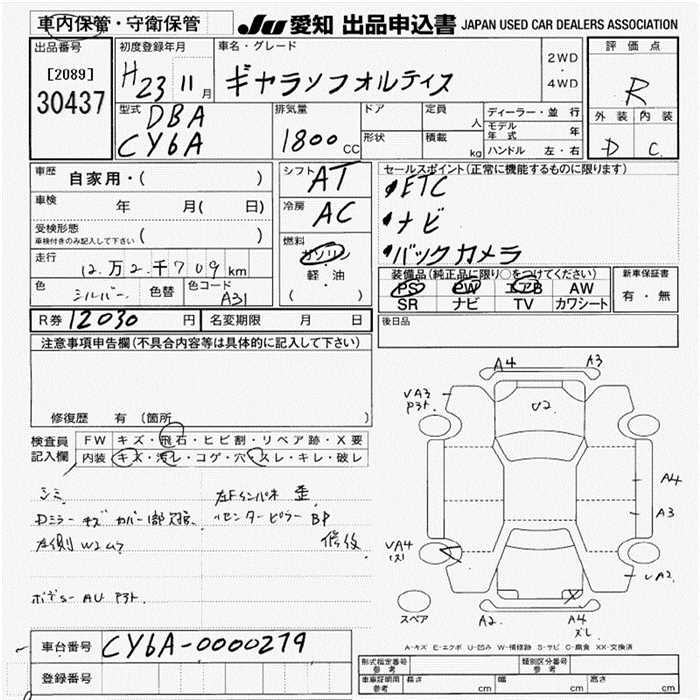 車内保管・守衛保管
JU 愛知 出品申込書 JAPAN USED CAR DEALERS ASSOCIATION
出品番号
[2089]
30437
初度登録年月
H23 11月
車名・グレード
ギャランフォルティス
2WD
・
4WD
評価点
R
外装 内装
D C
型式
DBA
CY6A
排気量
1800 CC
ドア
形状
定員
人
積載
kg
ディーラー・並行
モデル年式 年
ハンドル 左・右
車歴 自家用・( )
車検 年 月( 日)
受検形態
車検付きのみ記入して下さい ( )
走行
12万2千709km
色 シルバー 色替 色コード A31
シフト AT
冷房 AC
燃料
ガソリン
軽・油
( )
セールスポイント(正常に機能するものに限ります)
・ETC
・ナビ
・バックカメラ
装備品(純正品に限り○をつけてください)
PS PW エアB AW
SR ナビ TV カワシート
新車保証書
有・無
R券 12030 円 名変期限 月 日
後日品
注意事項申告欄(不具合内容等は具体的に記入して下さい)
修復歴 有 (箇所 )
検査員記入欄
FW キズ・飛石・ヒビ割・リペア跡・X要
内装 キズ・汚レ・コゲ・穴・スレ・キレ・破レ
シミ
Dミラーキズ カバー1部欠損
左側 W2ムラ
ボデーS AU Pヨト.
左Fインパネ 歪
センターピラー BP
修後
A4 A3
VA3
Pヨト.
U2
A4
A3
VA4
(ス)
A2
スペア
A2. A4
ズレ
A-キズ E-エクボ U-凹み W-補修跡 S-サビ C-腐食 XX-交換済
車台番号 CY6A-0000279
登録番号
形式指定番号 参考
類別区分番号 参考
車庫証明用 参考 長さ cm 幅 cm 高さ cm